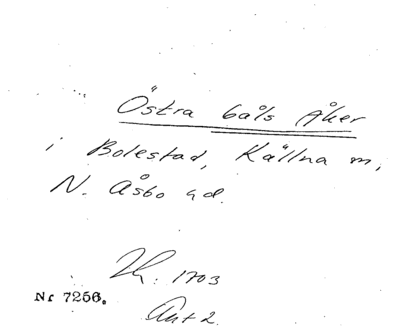 Östra båls Åker
i Bolestad, Källna m,
N. Åsbo hd.
1703
Nr 7256.
Ant 2.